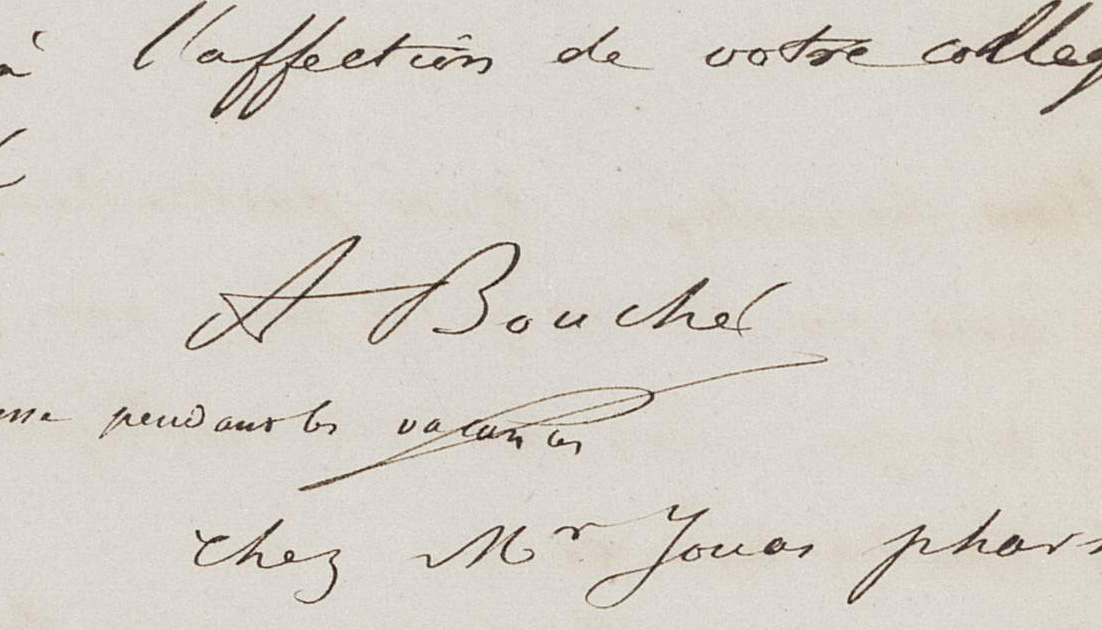 à l'affection de votre colleg
A Bouché
esse pendant les vacances
chez Mr Jouas phar